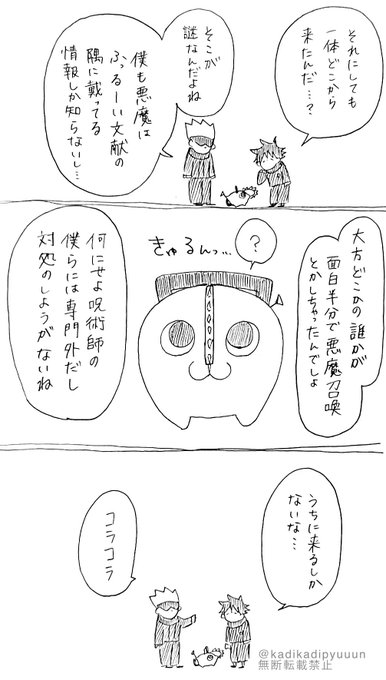 それにしても
一体どこから
来たんだ…?
そこが
謎なんだよね
僕も悪魔は
ふるーい文献の
隅に載ってる
情報しか知らないし…
大方どこかの誰かが
面白半分で悪魔召喚
とかしちゃったんでしょ
?
きゅるんっ…
何にせよ呪術師の
僕らには専門外だし
対処のしようがないね
うちに来るしか
ないな…
コラコラ
@kadikadipyuuun
無断転載禁止